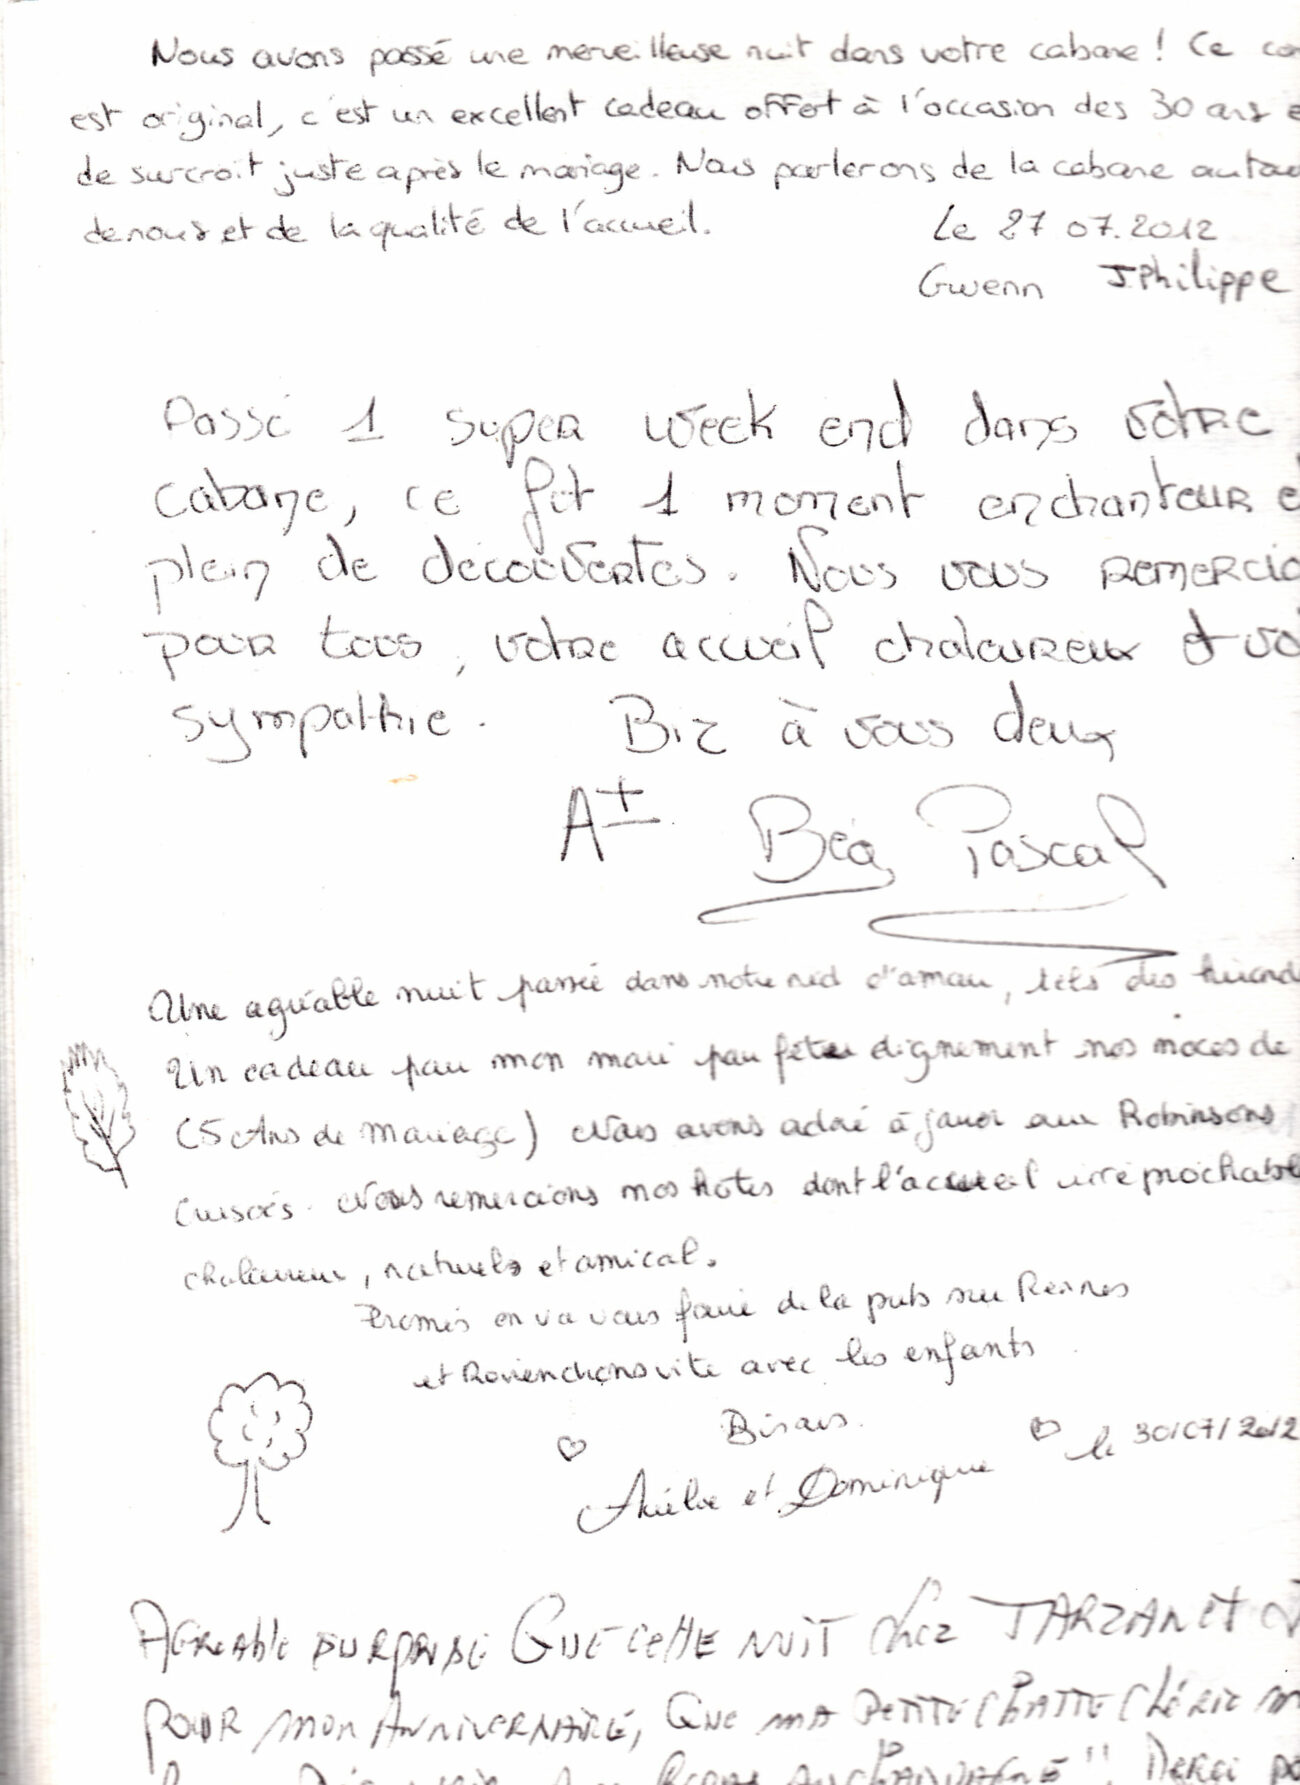 Nous avons passé une merveilleuse nuit dans votre cabane ! Ce
est original, c'est un excellent cadeau offert à l'occasion des 30 ans
de surcroit juste après le mariage. Nous parlerons de la cabane
de nous et de la qualité de l'accueil.
Le 27 07.2012
Gwenn J.Philippe
Passé 1 super week end dans votre
cabane, ce fut 1 moment enchanteur
plein de découvertes. Nous vous
pour tous, votre accueil chaleureux et
sympathie. Biz à vous deux
A+ Béa Pascal
Une agréable nuit passée dans notre nid d'amour, tels des
Un cadeau pour mon mari pour fêter dignement nos noces de
(5 Ans de Mariage) Nous avons adoré à jouer aux Robinsons
Crusoés. Nous remercions nos hôtes dont l'accueil irréprochable
chaleureux, naturels et amical.
Promis on va vous faire de la pub sur Rennes
et Reviendrons vite avec les enfants
Bisous.
le 30/07/2012
et Dominique
AGREABLE SURPRISE QUE CETTE NUIT chez TARZAN et
POUR MON ANNIVERSAIRE, QUE MA PETITE CHATTE CHÉRIE